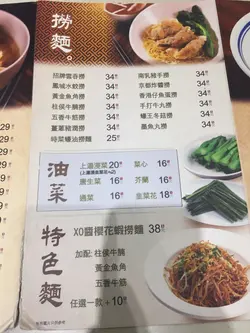 撈麵。
招牌雲吞撈 34元
鳳城水餃撈 34元
黃金魚角撈 34元
柱侯牛腩撈 34元
五香牛筋撈 34元
薑蔥豬潤撈 34元
時菜蠔油撈麵 25元
南乳豬手撈 34元
京都炸醬撈 34元
香港仔魚蛋撈 34元
手打牛丸撈 34元
蠔王冬菇撈 34元
墨魚丸撈 34元
油菜
上湯浸菜 20元
唐生菜 16元
通菜 16元
菜心 16元
芥蘭 16元
韭菜花 18元
特色麵
XO醬櫻花蝦撈麵 38元
加配: 柱侯牛腩
黃金魚角
五香牛筋
任選一款 + 10元